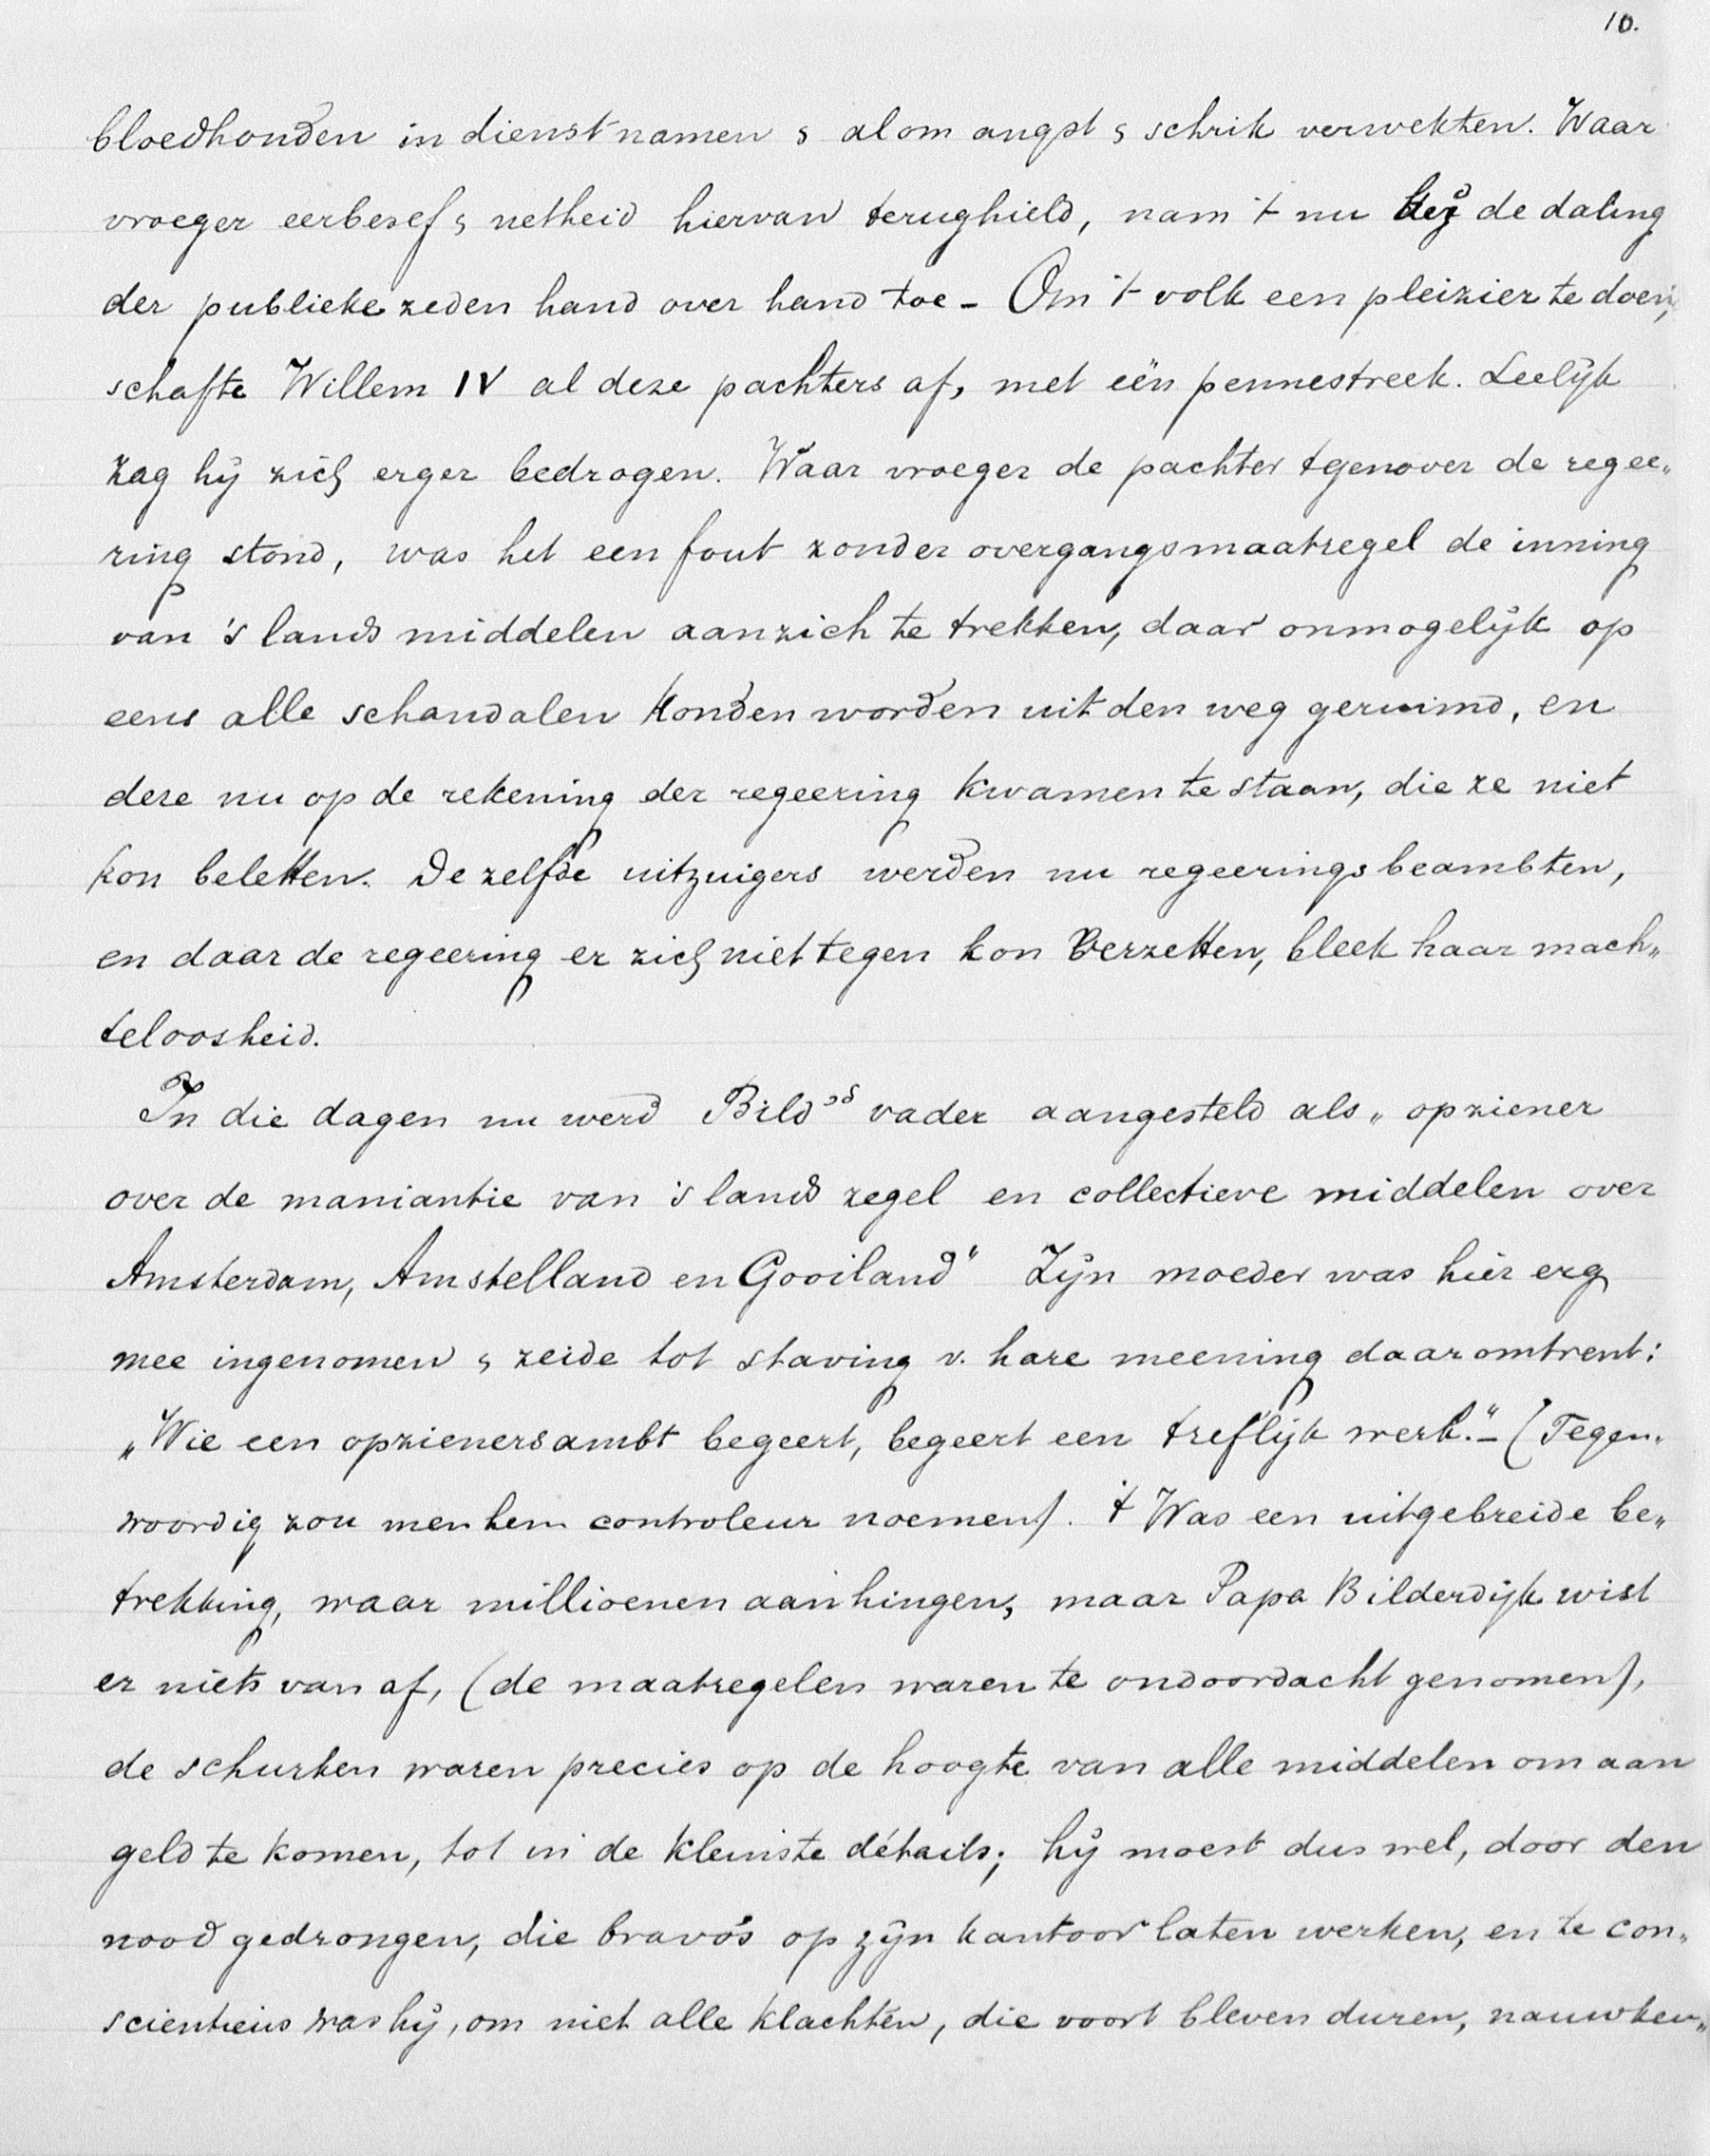 10.
bloedhonden in dienst namen & alom angst & schrik verwekten. Waar
vroeger eerbesef & netheid hiervan terughield, nam 't nu bij de daling
der publieke zeden hand over hand toe - Om 't volk een pleizier te doen,
schafte Willem IV al deze pachters af, met één pennestreek. Leelijk
zag hij zich erger bedrogen. Waar vroeger de pachter tgenover de regee„
ring stond, was het een fout zonder overgangsmaatregel de inning
van 's lands middelen aanzich te trekken, daar onmogelijk op
eens alle schandalen konden worden uit den weg geruimd, en
deze nu op de rekening der regeering kwamen te staan, die ze niet
kon beletten. Dezelfde uitzuigers werden nu regeeringsbeambten,
en daar de regeering er zich niet tegen kon verzetten, bleek haar mach„
teloosheid.
In die dagen nu werd Bild's vader aangesteld als „opziener
over de maniantie van 's lands zegel en collectieve middelen over
Amsterdam, Amstelland en Gooiland" Zijn moeder was hier erg
mee ingenomen & zeide tot staving v. hare meening daaromtrent:
„Wie een opzienersambt begeert, begeert een treflijk werk." - (Tegen„
woordig zou men hem controleur noemen). 't Was een uitgebreide be„
trekking, waar millioenen aan hingen, maar Papa Bilderdijk wist
er niets van af, (de maatregelen waren te ondoordacht genomen),
de schurken waren precies op de hoogte van alle middelen om aan
geld te komen, tot in de kleinste détails; hij moest dus wel, door den
nood gedrongen, die bravo's op zijn kantoor laten werken, en te con„
scientieus was hij, om niet alle klachten, die voort bleven duren, nauwkeu„